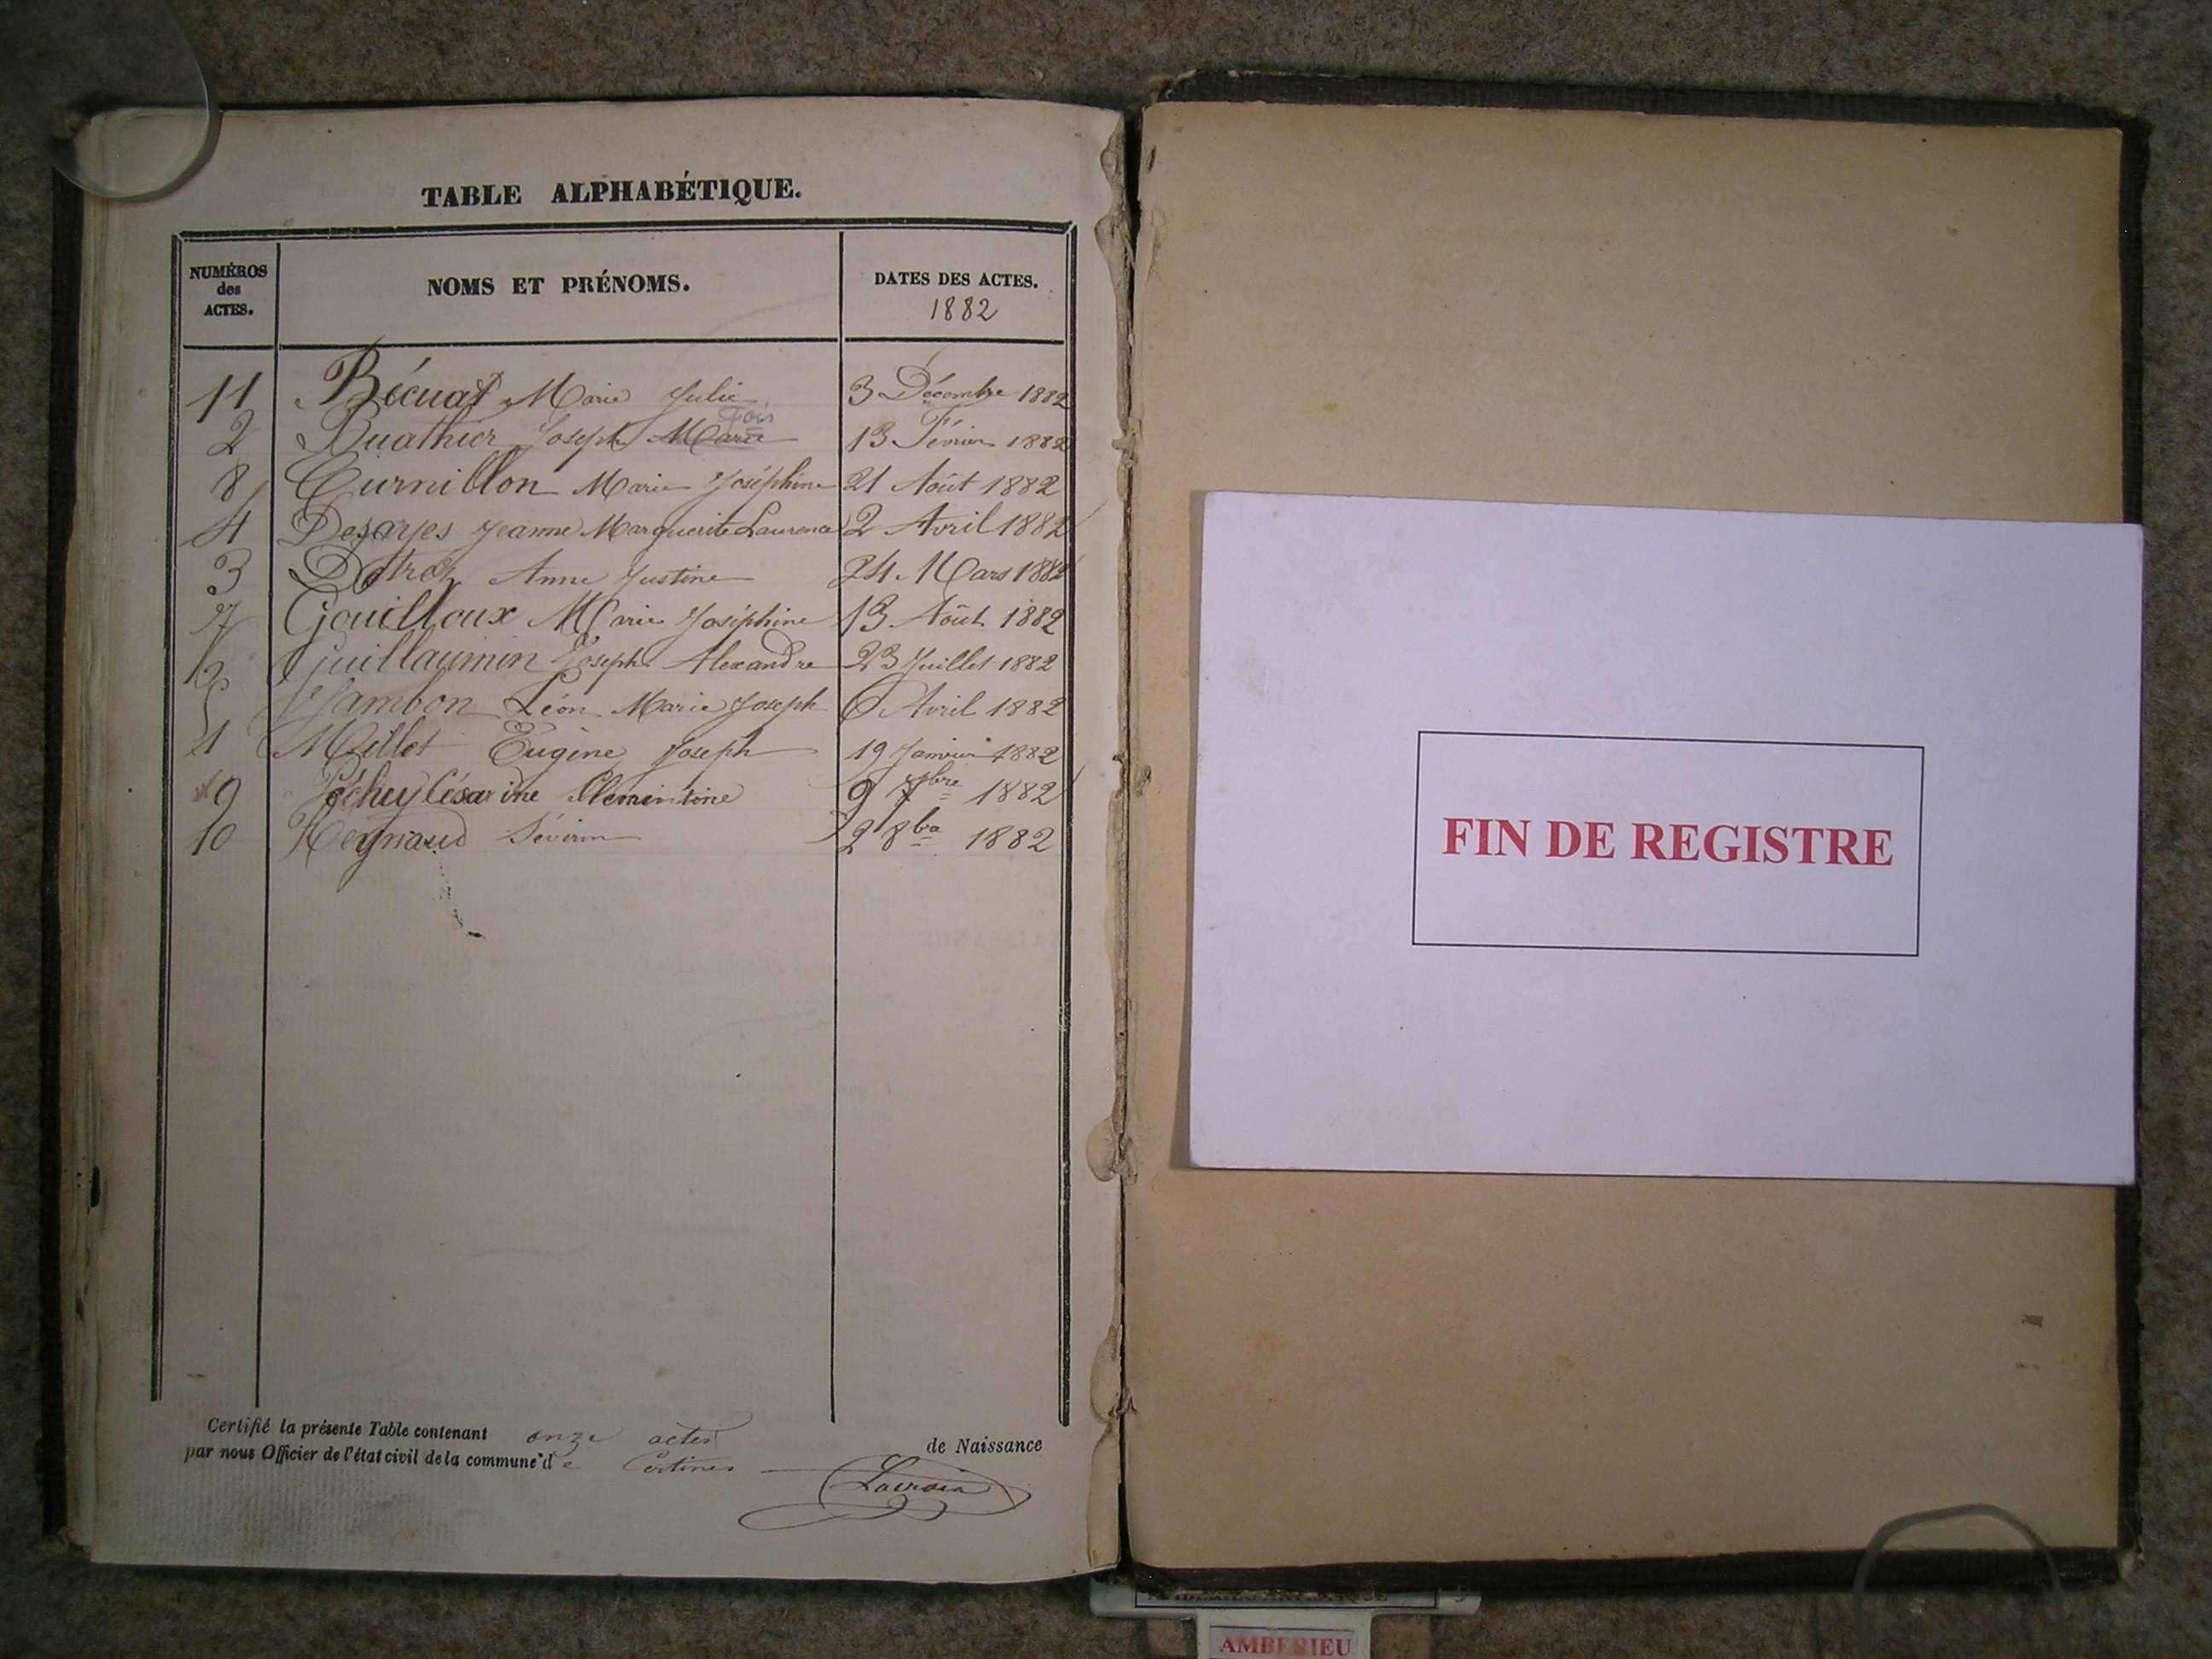 TABLE ALPHABÉTIQUE.
NUMÉROS des ACTES. NOMS ET PRÉNOMS. DATES DES ACTES. 1882
11 Bécuat Marie Julie 3 Décembre 1882
Fois
2 Buathier Joseph Marie 13 Février 1882
8 Curnillon Marie Joséphine 21 Août 1882
4 Desayes Jeanne Marguerite Laurence 2 Avril 1882
3 Anne Justine 24 Mars 1882
7 Gouilloux Marie Joséphine 13 Août 1882
6 Guillaumin Joseph Alexandre 23 Juillet 1882
5 Jambon Léon Marie Joseph 6 Avril 1882
1 Millet Eugène Joseph 19 Janvier 1882
9 Péchuy Césarine Clémentine 9 7bre 1882
10 Reynaud Séverin 2 8bre 1882
Certifié la présente Table contenant onze actes de Naissance
par nous Officier de l'état civil de la commune de Certines
Lacroix
FIN DE REGISTRE
AMBERIEU